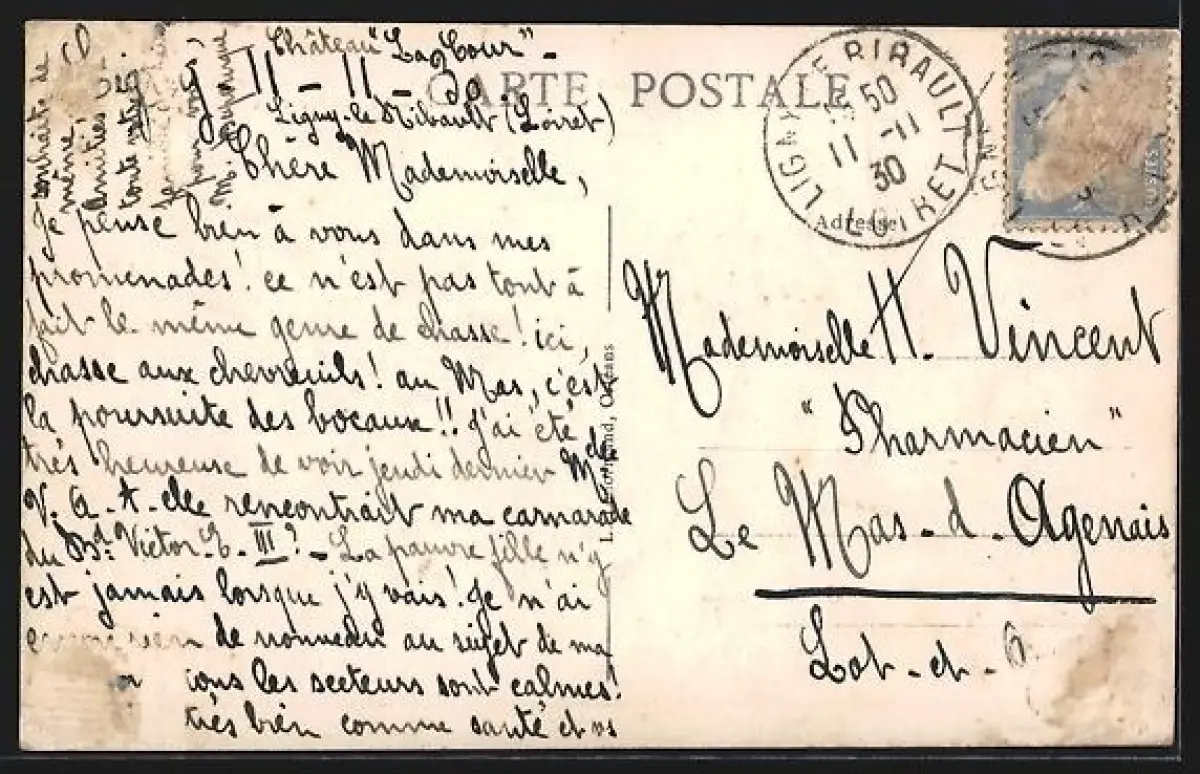 Château "La Cour" -
11 - 11 - 30
Ligny-le Ribault (Loiret)
Chère Mademoiselle,
Je pense bien à vous dans mes
promenades! ce n'est pas tout à
fait le même genre de chasse! ici,
chasse aux chevreuils! au Mas, c'est
la poursuite des bocaux!! J'ai été
très heureuse de voir jeudi dernier Mde
V. A-t-elle rencontrait ma camarade
du Bd. Victor-E. III? - La pauvre fille n'y
est jamais lorsque j'y vais! Je n'ai
rien de nouveau au sujet de ma
tous les secteurs sont calmes!
très bien comme santé et vs
même
amitiés
toute votre
pour vous
CARTE POSTALE
LIGNY-LE RIBAULT
50
11 -11
30
LOIRET
Adresse
POSTES
Mademoiselle H. Vincent
"Pharmacien"
Le Mas-d-Agenais
Lot-et-G
Orléans